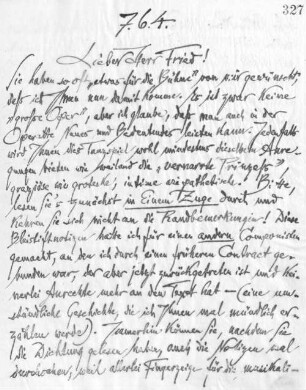 327
7.6.4.
Lieber Herr Fried!
Sie haben so oft "etwas für die Bühne" von mir gewünscht,
daß ich Ihnen nun damit komme. Es ist zwar keine
"große Oper", aber ich glaube, daß man auch in der
Operette Neues und Bedeutendes leisten kann. Jedenfalls
wird Ihnen dies Tanzspiel wohl mindestens
bieten wie weiland die "vernarrte Prinzeß"
graziöse wie groteske, intime wie pathetische. Bitte,
lesen Sie's zunächst in Einem Zuge durch und
kehren Sie sich nicht an die Randbemerkungen! Diese
Bleistiftnotizen habe ich für einen andern Componisten
gemacht, an den ich durch einen früheren Contract ge-
bunden war, der aber jetzt zurückgetreten ist und kei-
nerlei Anrechte mehr an den Text hat – (eine um-
ständliche Geschichte, die ich Ihnen mal mündlich er-
zählen werde). Immerhin können Sie, nachdem Sie
die Dichtung gelesen haben, auch die Notizen mal
durchsehen, weil allerlei Fingerzeige für die musikali-